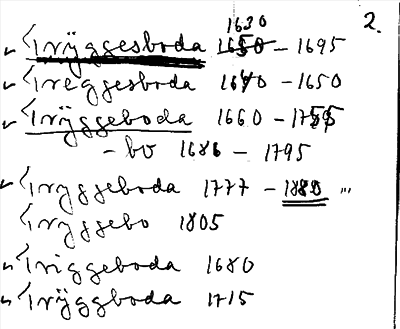 1630 2.
" Tryggesboda 1650 - 1695
" Treggesboda 1640 - 1650
" Trÿggeboda 1660 - 1755
- bo 1686 - 1795
" Tryggeboda 1777 - 1880 ...
Tryggebo 1805
" Triggeboda 1680
" Trÿggboda 1715